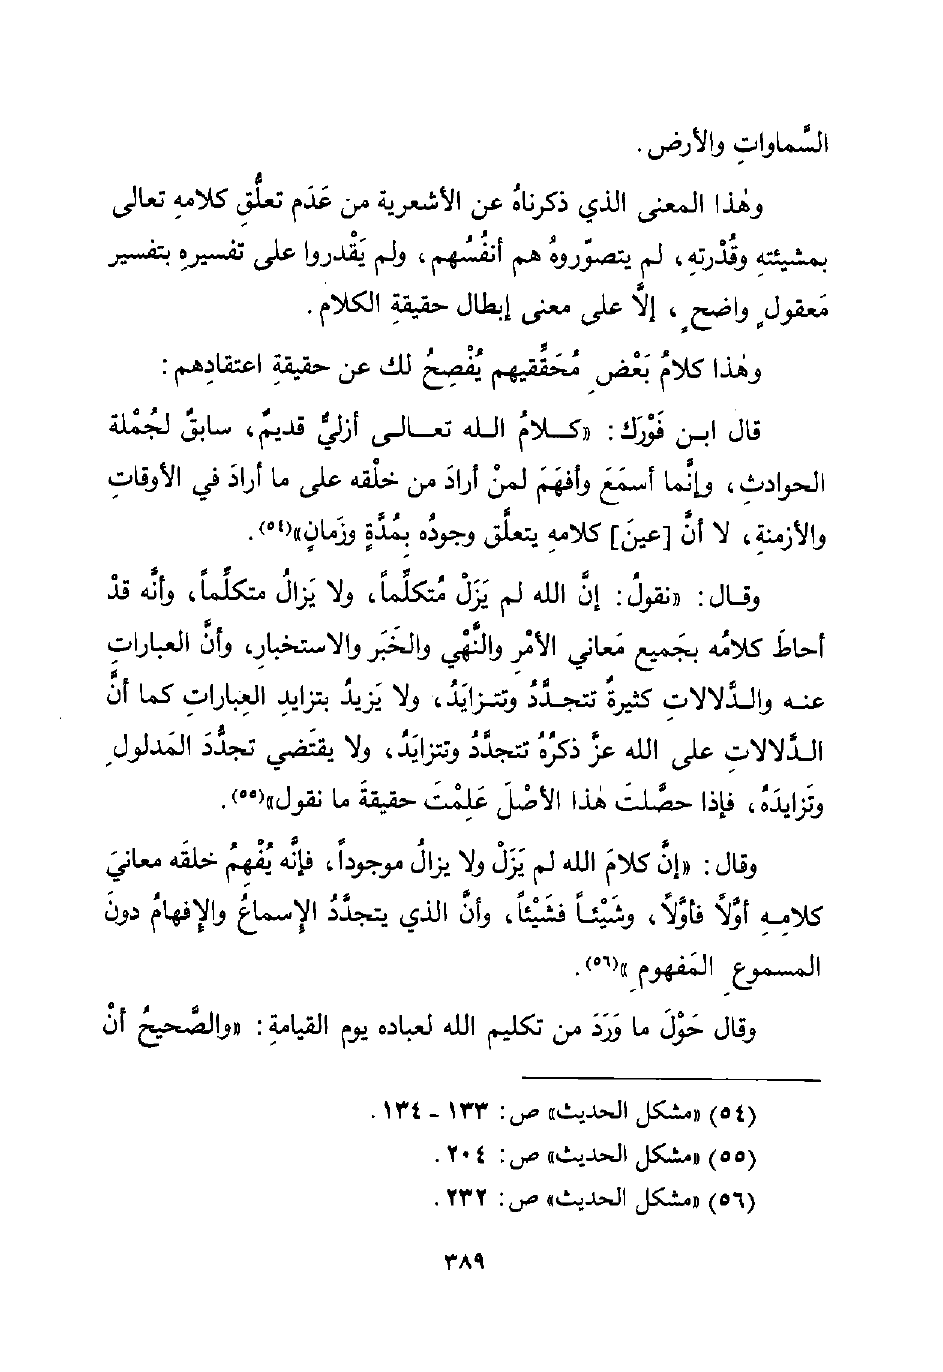 السَّماواتِ والأرض.
وهٰذا المعنى الذي ذكرناهُ عن الأشعرية من عَدَم تعلُّقِ كلامهِ تعالى
بمشيئتهِ وقُدْرتهِ، لم يتصوّروهُ هم أنفُسُهم، ولم يَقْدروا على تفسيرهِ بتفسير
مَعقولٍ واضحٍ، إلَّا على معنى إبطال حقيقةِ الكلام.
وهٰذا كلامُ بَعْضِ مُحَقَّقيهم يُفْصِحُ لك عن حقيقةِ اعتقادِهم:
قال ابـن فَوْرَك: «كـلامُ الـله تعـالـى أزليٌّ قديمٌ، سابقٌ لجُمْلة
الحوادث، وإنَّما أسمَعَ وأفهَمَ لمنْ أرادَ من خلْقه على ما أرادَ في الأوقاتِ
والأزمنةِ، لا أنَّ [عينَ] كلامهِ يتعلَّق وجودُه بمُدَّةٍ وزَمانٍ»(٥٤).
وقـال: «نقولُ: إنَّ الله لم يَزَلْ مُتكلِّماً، ولا يَزالُ متكلِّماً، وأنَّه قدْ
أحاطَ كلامُه بجَميع مَعاني الأمْرِ والنَّهْي والخَبَر والاستخبارِ، وأنَّ العباراتِ
عنـه والـدِّلالاتِ كثيرةٌ تتجـدَّدُ وتتـزايَدُ، ولا يَزيدُ بتزايدِ العباراتِ كما أنَّ
الـدِّلالاتِ على الله عزَّ ذكرُهُ تتجدَّدُ وتتزايَدُ، ولا يقتَضي تجدُّدَ المَدلولِ
وتَزايدَهُ، فإذا حصَّلتَ هٰذا الأصْلَ عَلِمْتَ حقيقةَ ما نقول»(٥٥).
وقال: «إنَّ كلامَ الله لم يَزَلْ ولا يزالُ موجوداً، فإنَّه يُفْهِمُ خلقَه معانيَ
كلامِـهِ أوَّلاً فأوَّلاً، وشَيْئـاً فشَيْئاً، وأنَّ الذي يتجدَّدُ الإسماعُ والإفهامُ دونَ
المـسموعِ المَفهومِ»(٥٦).
وقال حَوْلَ ما وَرَدَ من تكليم الله لعباده يوم القيامةِ: «والصَّحيحُ أنْ
(٥٤) «مشكل الحديث» ص: ١٣٣ - ١٣٤.
(٥٥) «مشكل الحديث» ص: ٢٠٤.
(٥٦) «مشكل الحديث» ص: ٢٣٢.
٣٨٩